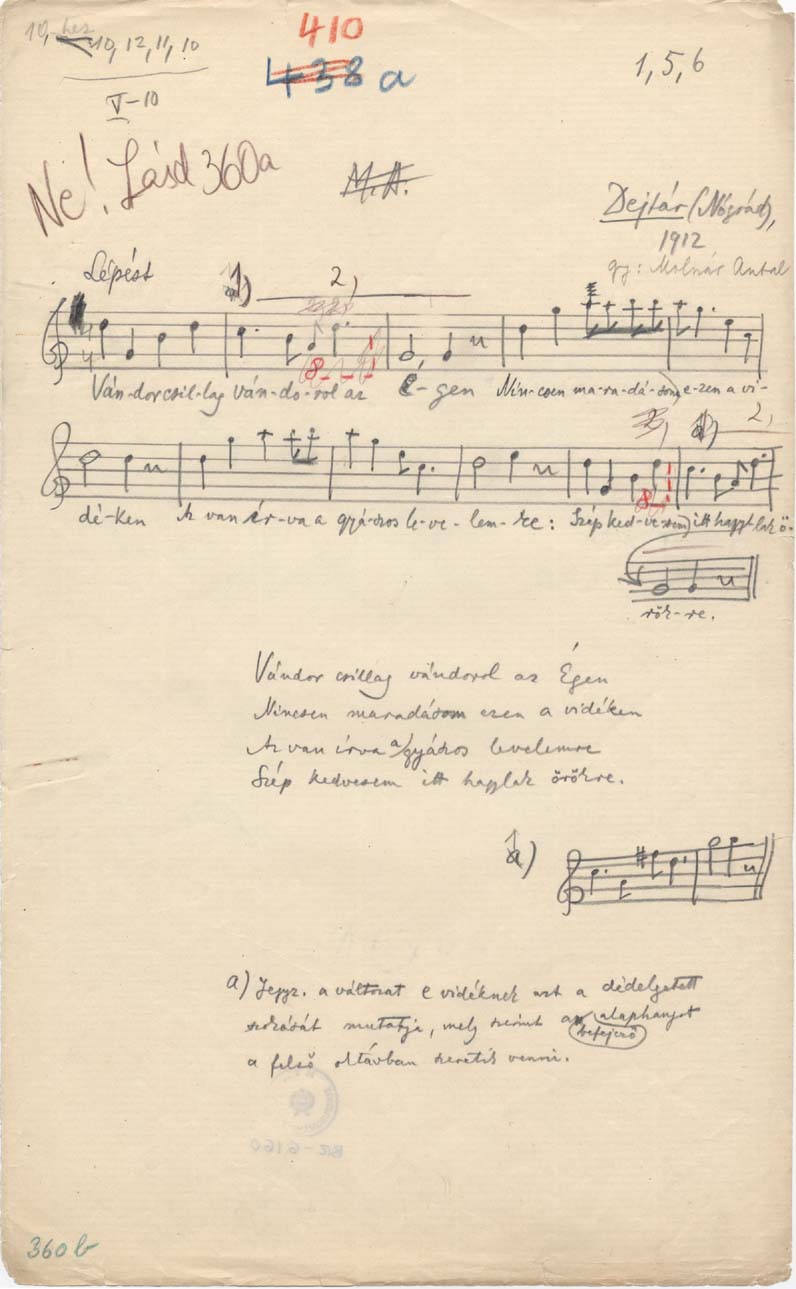 10,-hez
10, 12, 11, 10
V-10
410
438 a
1, 5, 6
Ne! Lásd 360a
M.A.
Dejtár (Nógrád),
1912
gy: Molnár Antal
Lépést
1) 2)
Ván-dor csil-lag ván-do-rol az é-gen Nin-csen ma-ra-dá-som e-zen a vi-
dé-ken Az van ír-va a gyá-szos le-ve-lem-re: Szép ked-ve-sem itt hagylak ö-
rök-re.
Vándor csillag vándorol az Égen
Nincsen maradásom ezen a vidéken
Az van írva a gyászos levelemre
Szép kedvesem itt hagylak örökre.
a) Jegyz. a változat e vidéknek azt a dédelgetett
szokását mutatja, mely szerint a befejező alaphangot
a felső oktávban szeretik venni.
BR-6160
360b